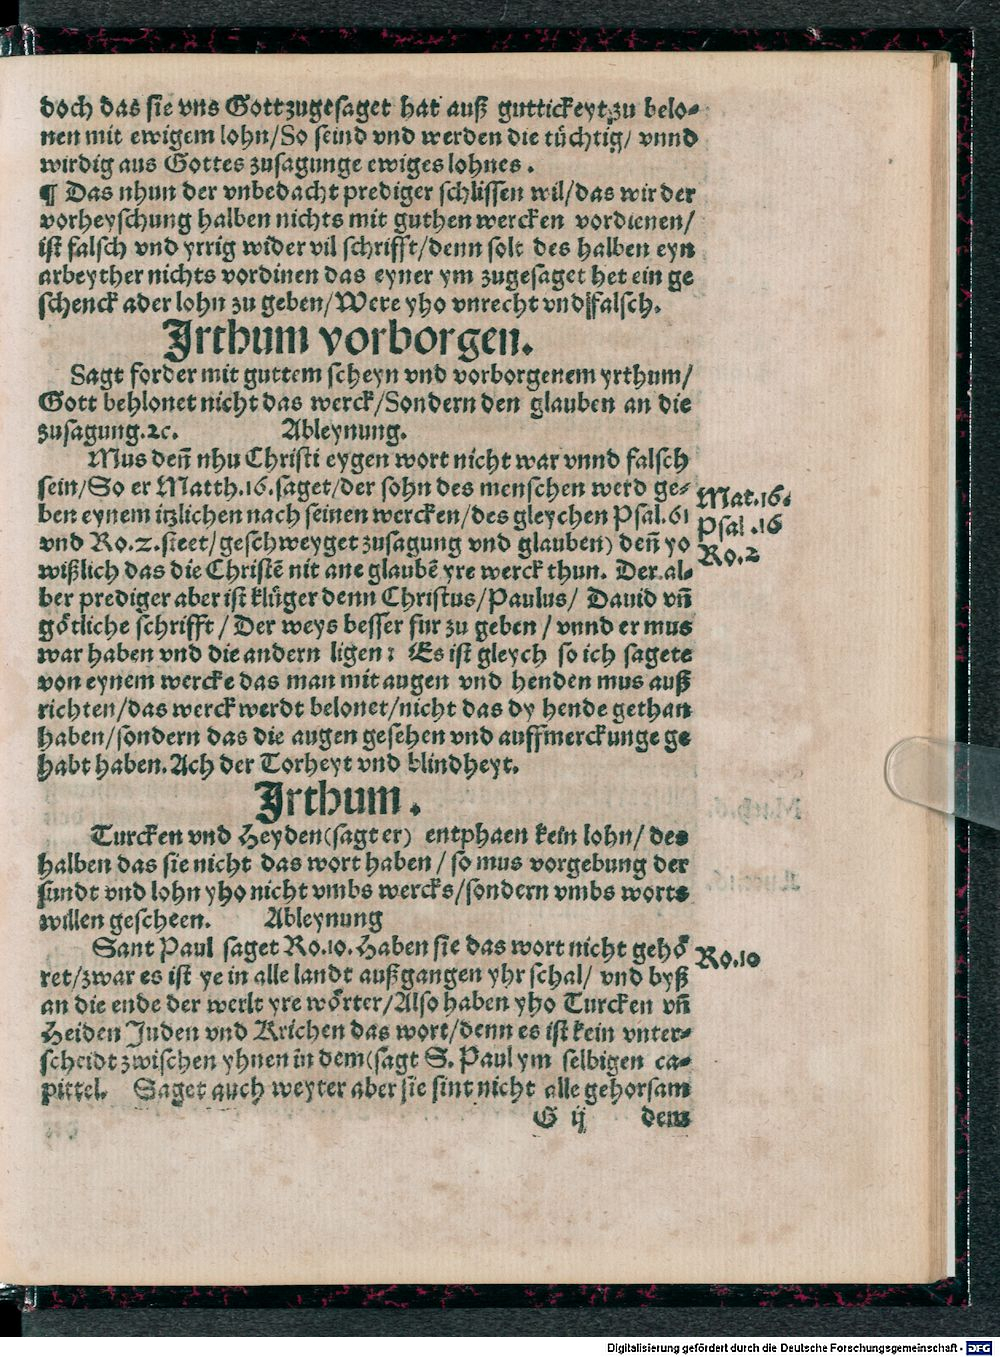 doch das sie vns Gott zugesaget hat auß guttickeyt zu belo-
nen mit ewigem lohn/So seind vnd werden die tüchtig/ vnnd
wirdig aus Gottes zusagunge ewiges lohnes.
¶ Das nhun der vnbedacht prediger schlissen wil/das wir der
vorheyschung halben nichts mit guthen wercken vordienen/
ist falsch vnd yrrig wider vil schrifft/denn solt des halben eyn
arbeyther nichts vordinen das eyner ym zugesaget het ein ge
schenck ader lohn zu geben/Were yho vnrecht vnd falsch.
Irthum vorborgen.
Sagt forder mit guttem scheyn vnd vorborgenem yrthum/
Gott behlonet nicht das werck/Sondern den glauben an die
zusagung.ꝛc. Ableynung.
Mus deñ nhu Christi eygen wort nicht war vnnd falsch
sein/So er Matth.16.saget/der sohn des menschen werd ge-
ben eynem itzlichen nach seinen wercken/des gleychen Psal.61
vnd Ro.2.steet/geschweyget zusagung vnd glauben) deñ yo
wißlich das die Christē nit ane glaubē yre werck thun. Der al-
ber prediger aber ist klüger denn Christus/Paulus/ Dauid vñ
götliche schrifft/Der weys besser fur zu geben/vnnd er mus
war haben vnd die andern ligen: Es ist gleych so ich sagete
von eynem wercke das man mit augen vnd henden mus auß
richten/das werck werdt belonet/nicht das dy hende gethan
haben/sondern das die augen gesehen vnd auffmerckunge ge
habt haben. Ach der Torheyt vnd blindheyt.
Mat.16.
Psal.16
Ro.2
Irthum.
Turcken vnd Heyden(sagt er) entphaen kein lohn/ des
halben das sie nicht das wort haben/so mus vorgebung der
sundt vnd lohn yho nicht vmbs wercks/sondern vmbs worts
willen gescheen. Ableynung
Sant Paul saget Ro.10. Haben sie das wort nicht gehö
ret/zwar es ist ye in alle landt außgangen yhr schal/ vnd byß
an die ende der werlt yre wörter/Also haben yho Turcken vñ
Heiden Juden vnd Krichen das wort/denn es ist kein vnter-
scheidt zwischen yhnen in dem(sagt S. Paul ym selbigen ca-
pittel. Saget auch weyter aber sie sint nicht alle gehorsam
Ro.10
G ij dem
Digitalisierung gefördert durch die Deutsche Forschungsgemeinschaft - DFG